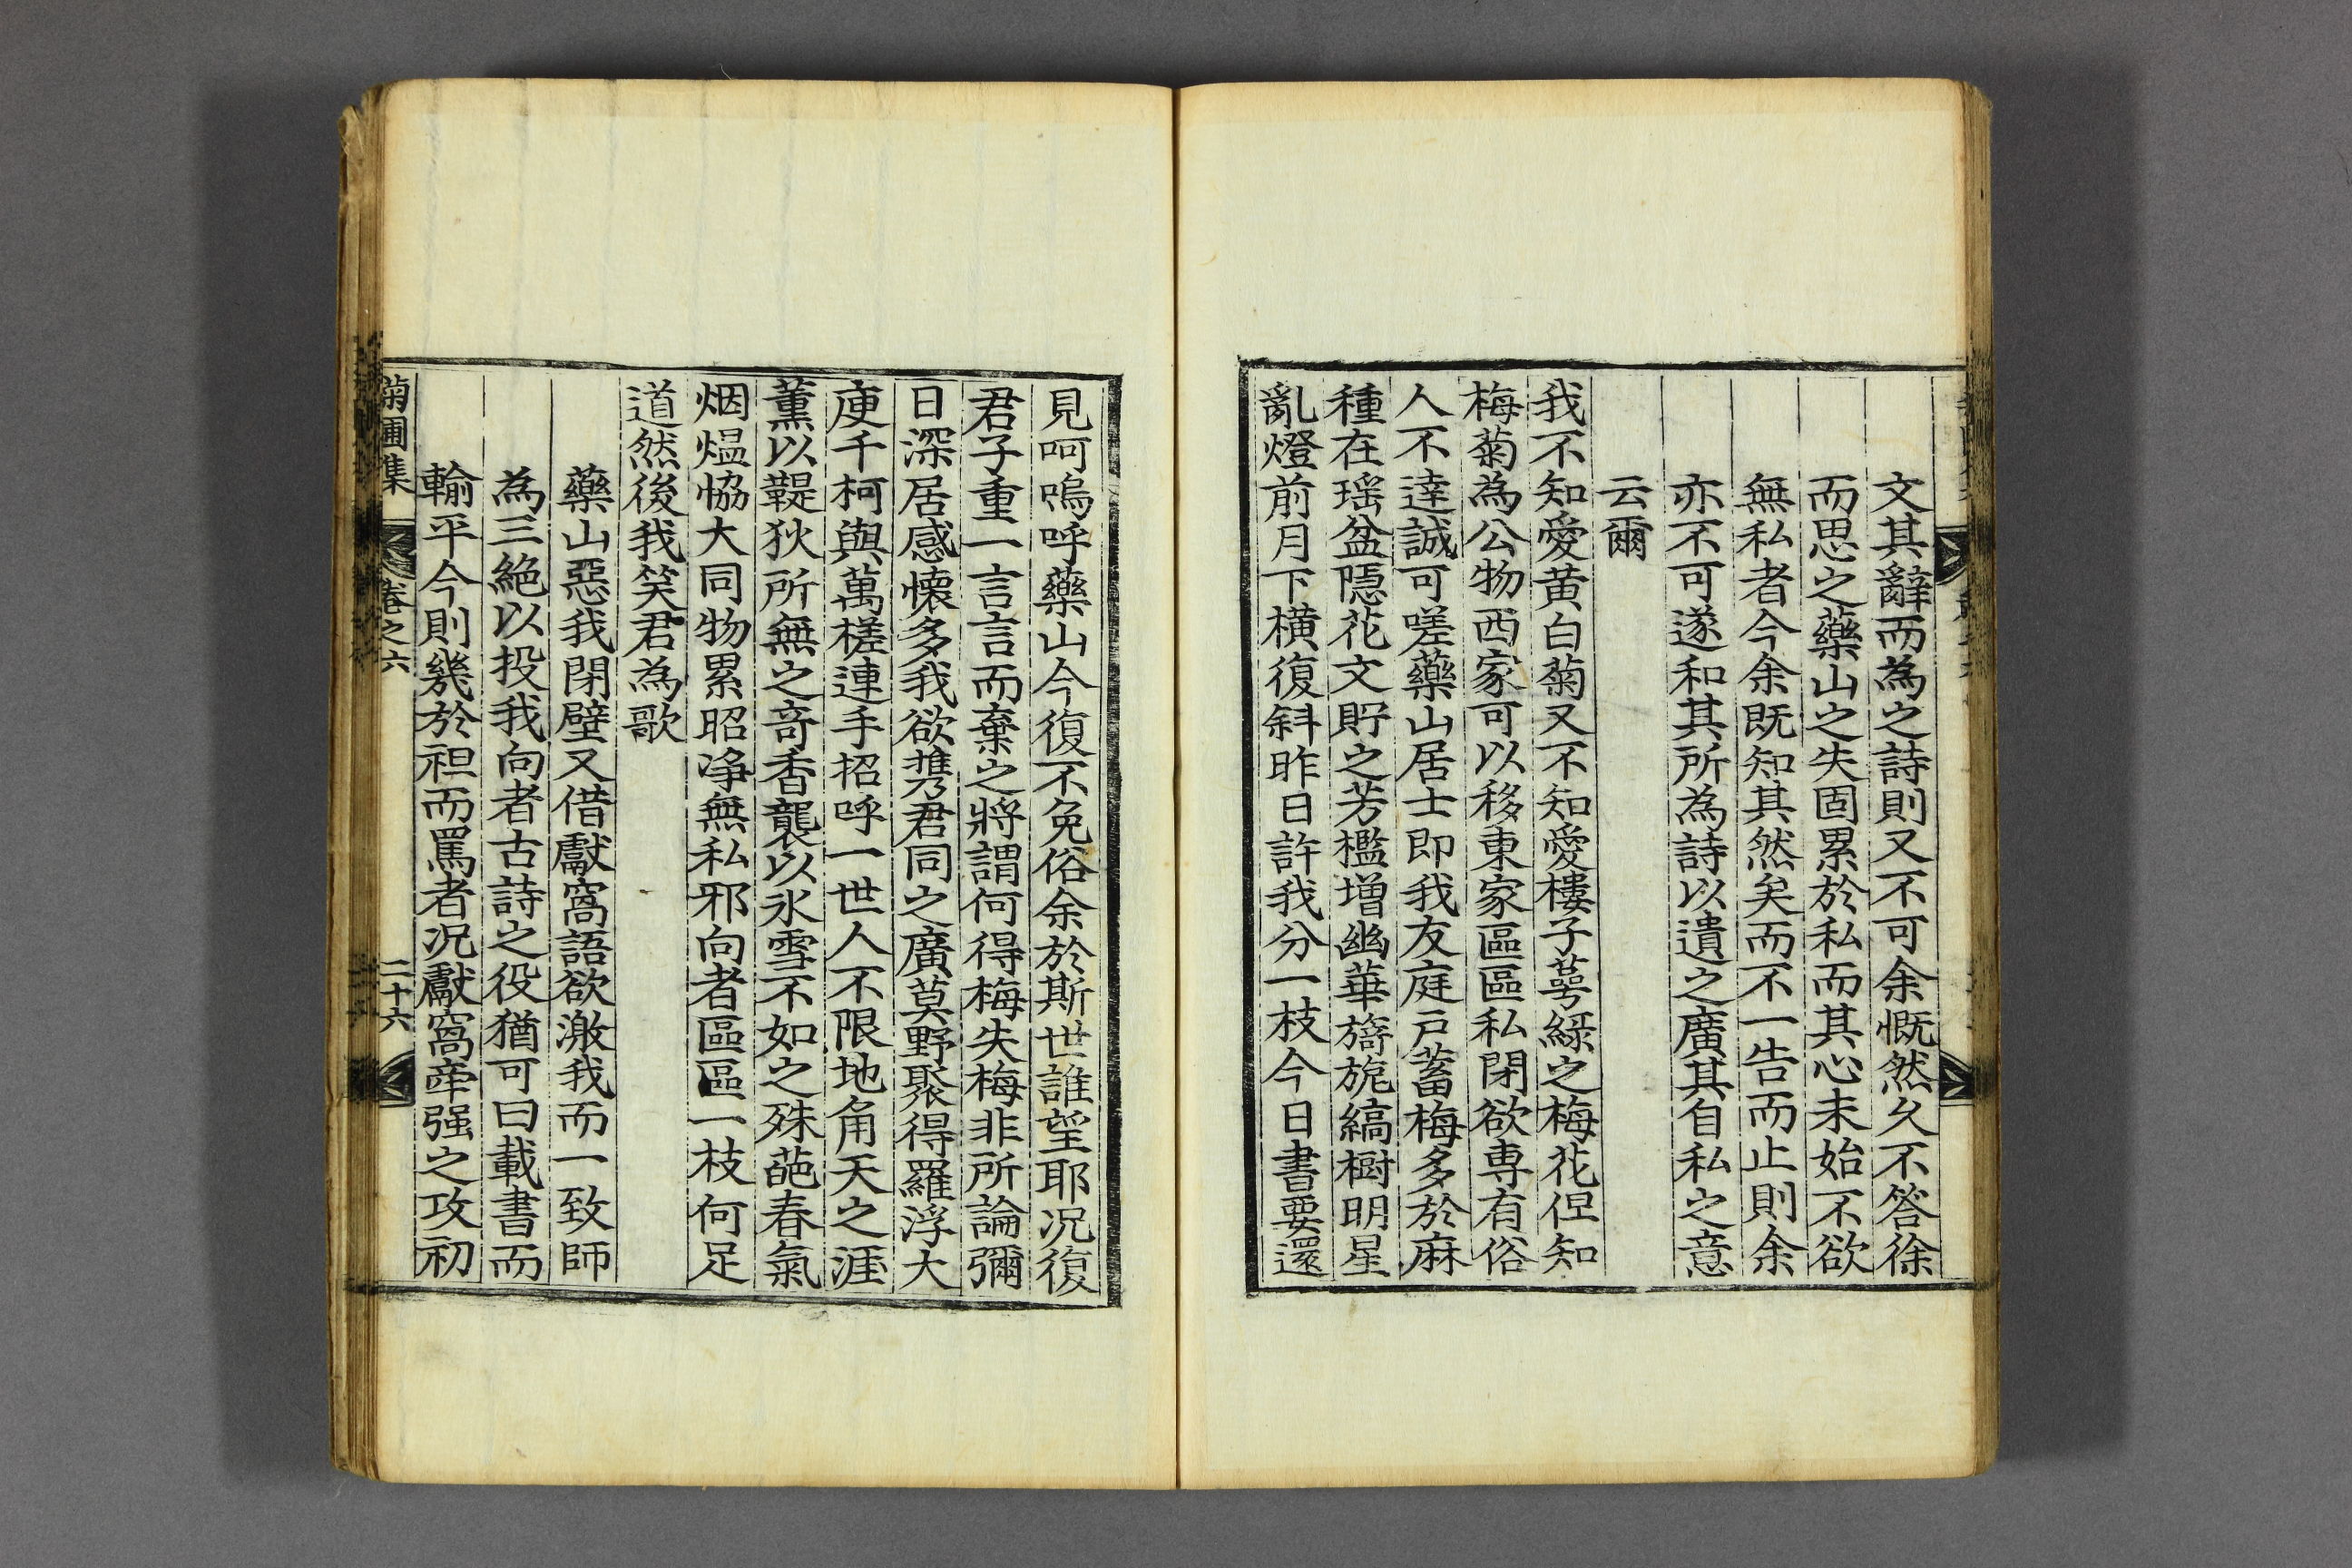 文其辭而為之詩則又不可余慨然久不答徐
而思之藥山之失固累於私而其心未始不欲
無私者今余既知其然矣而不一告而止則余
亦不可遂和其所為詩以遺之廣其自私之意
云爾
我不知愛黃白菊又不知愛樓子萼綠之梅花但知
梅菊為公物西家可以移東家區區私閉欲專有俗
人不達誠可嗟藥山居士即我友庭戶蓄梅多於麻
種在瑶盆隱花文貯之芳檻增幽華旖旎縞樹明星
亂燈前月下橫復斜昨日許我分一枝今日書要還
見呵嗚呼藥山今復不免俗余於斯世誰望耶况復
君子重一言言而棄之將謂何得梅失梅非所論彌
日深居感懷多我欲携君同之廣莫野聚得羅浮大
庾千柯與萬槎連手招呼一世人不限地角天之涯
薰以鞮狄所無之奇香襲以氷雪不如之殊葩春氣
烟熅恊大同物累昭净無私邪向者區區一枝何足
道然後我笑君為歌
藥山惡我閉壁又借獻窩語欲激我而一致師
為三絕以投我向者古詩之役猶可曰載書而
輸平今則幾於袒而罵者况獻窩牵强之攻初
菊圃集 卷之六 二十六